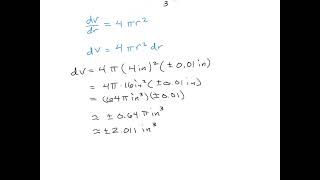 3
dv/dr = 4πr²
dv = 4πr² dr
dv = 4π(4in)²(±0.01in)
= 4π·16in²(±0.01in)
= (64πin²)(±0.01)
≈ ±0.64πin³
≈ ±2.011in³